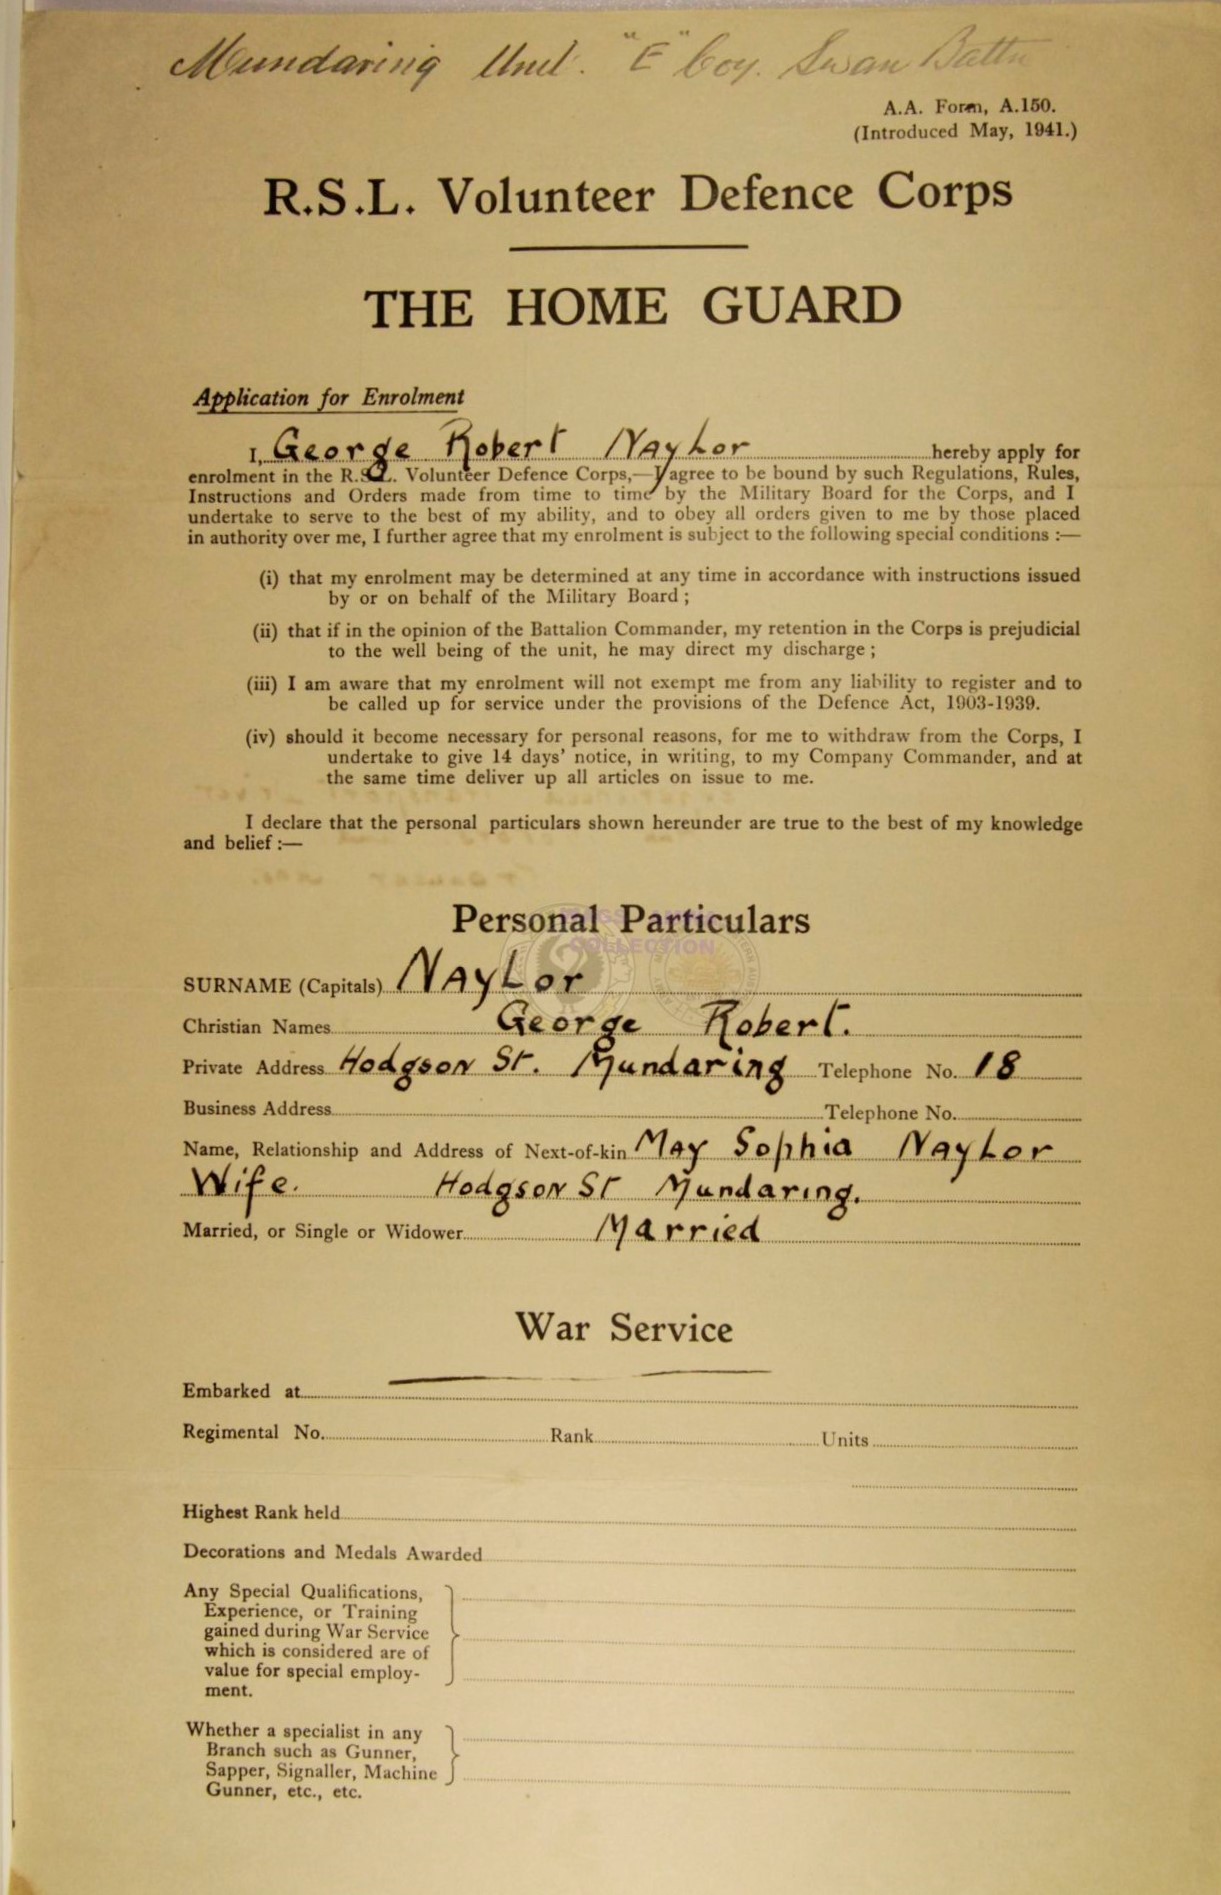 Mundaring Unit. "E" Coy. Swan Battn
A.A. Form, A.150.
(Introduced May, 1941.)
R.S.L. Volunteer Defence Corps
THE HOME GUARD
Application for Enrolment
I, George Robert Naylor hereby apply for
enrolment in the R.S.L. Volunteer Defence Corps,—I agree to be bound by such Regulations, Rules,
Instructions and Orders made from time to time by the Military Board for the Corps, and I
undertake to serve to the best of my ability, and to obey all orders given to me by those placed
in authority over me, I further agree that my enrolment is subject to the following special conditions :—
(i) that my enrolment may be determined at any time in accordance with instructions issued
by or on behalf of the Military Board ;
(ii) that if in the opinion of the Battalion Commander, my retention in the Corps is prejudicial
to the well being of the unit, he may direct my discharge ;
(iii) I am aware that my enrolment will not exempt me from any liability to register and to
be called up for service under the provisions of the Defence Act, 1903-1939.
(iv) should it become necessary for personal reasons, for me to withdraw from the Corps, I
undertake to give 14 days' notice, in writing, to my Company Commander, and at
the same time deliver up all articles on issue to me.
I declare that the personal particulars shown hereunder are true to the best of my knowledge
and belief :—
Personal Particulars
COLLECTION
SURNAME (Capitals) NAYLOR
Christian Names George Robert.
Private Address Hodgson St. Mundaring Telephone No. 18
Business Address Telephone No.
Name, Relationship and Address of Next-of-kin May Sophia Naylor
Wife. Hodgson St Mundaring.
Married, or Single or Widower Married
War Service
Embarked at
Regimental No. Rank Units
Highest Rank held
Decorations and Medals Awarded
Any Special Qualifications,
Experience, or Training
gained during War Service
which is considered are of
value for special employ-
ment.
Whether a specialist in any
Branch such as Gunner,
Sapper, Signaller, Machine
Gunner, etc., etc.